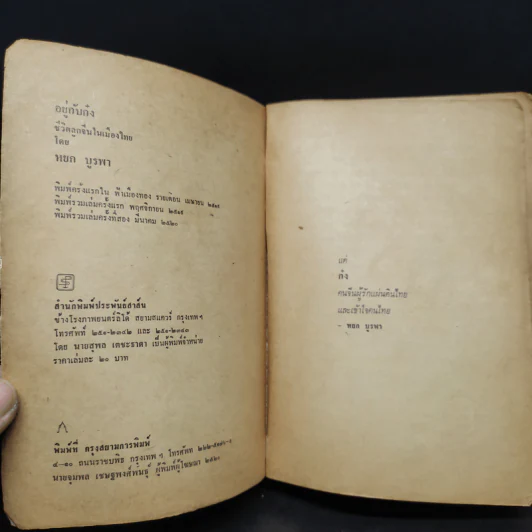 อยู่กับก๋ง
ชีวิตลูกจีนในเมืองไทย
โดย
หยก บูรพา
พิมพ์ครั้งแรกใน ฟ้าเมืองทอง รายเดือน เมษายน ๒๕๑๙
พิมพ์รวมเล่มครั้งแรก พฤศจิกายน ๒๕๑๙
พิมพ์รวมเล่มครั้งที่สอง มีนาคม ๒๕๒๐
สำนักพิมพ์ประพันธ์สาส์น
ข้างโรงภาพยนตร์ลิโด้ สยามสแควร์ กรุงเทพฯ
โทรศัพท์ ๒๕๑-๒๓๔๒ และ ๒๕๑-๒๓๔๑
โดย นายสุพล เตชะธาดา เป็นผู้พิมพ์จำหน่าย
ราคาเล่มละ ๒๐ บาท
พิมพ์ที่ กรุงสยามการพิมพ์
๘-๑๐ ถนนราชบพิธ กรุงเทพ ฯ โทรศัพท์
นายจุมพล เชษฐพงศ์พันธุ์ ผู้พิมพ์ผู้โฆษณา ๒๕๒๐
แด่
ก๋ง
คนจีนผู้รักแผ่นดินไทย
และเข้าใจคนไทย
- หยก บูรพา